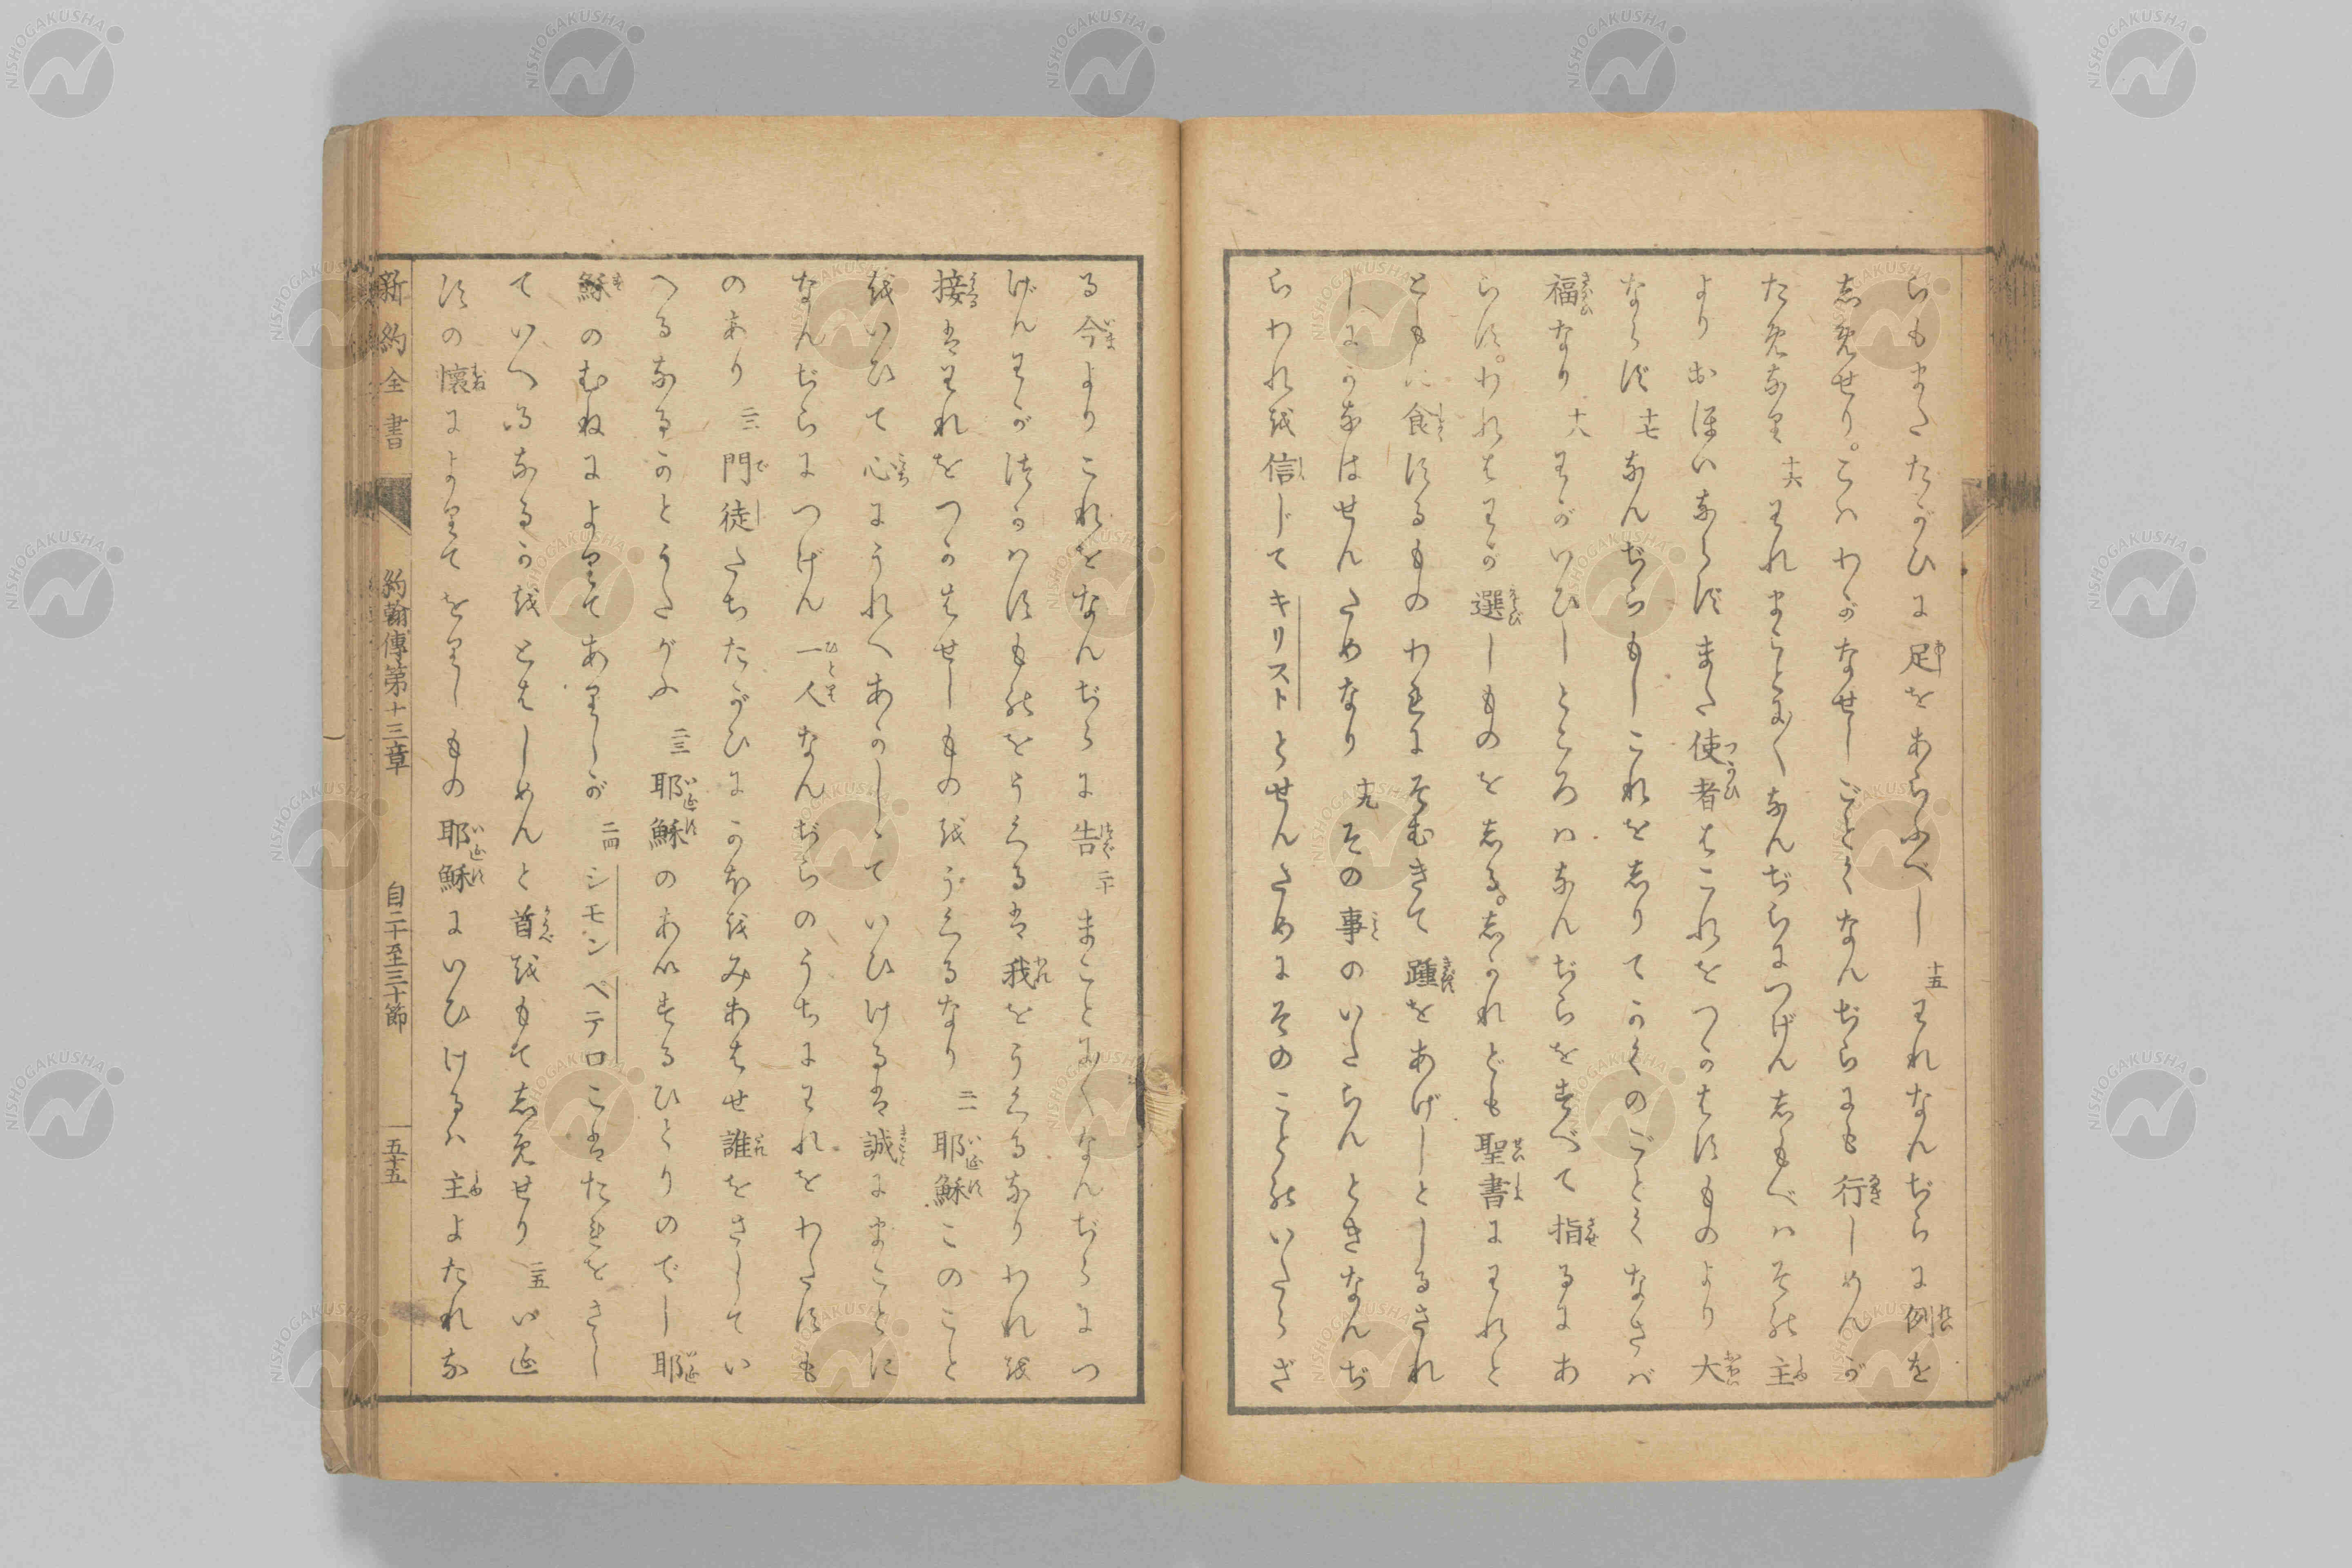 らもまたたがひに足をあらふべし 十五 われなんぢらに例を
志めせり。こハわがなせしごとくなんぢらにも行しめんが
ためなり 十六 われまことに〱なんぢらにつげん志もべハその主
よりおほいならずまた使者はこれをつかはすものより大
ならず 十七 なんぢらもしこれを志りてかくのごとくなさバ
福なり 十八 わがいひしところハなんぢらをすべて指るにあ
らず。われはわが選しものを志る。志かれども聖書にわれと
ともに食するものわれにそむきて踵をあげしとしるされ
しにかなはせんためなり 十九 その事のいたらんときなんぢ
らわれを信じてキリストとせんためにそのことのいたらざ
る今よりこれをなんぢらに告 二十 まことに〱なんぢらにつ
げんわがつかハすものをうくるは我をうくるなりわれを
接はわれをつかはせしものをうくるなり 二一 耶穌このこと
をいひて心にうれへあかしゝていひけるは誠にまことに
なんぢらにつげん一人なんぢらのうちにわれをわたすも
のあり 二二 門徒たちたがひにかほをみあはせ誰をさしてい
へるなるかとうたがふ 二三 耶穌のあいするひとりのでし耶
穌のむねによりてありしが 二四 シモンペテロこはたれをさし
ていへるなるかをとはしめんと首をもて志めせり 二五 いゑ
すの懐によりてをりしもの耶穌にいひけるハ主よたれな
新約全書 約翰傳第十三章 自二十至三十節 五十五
NISHOGAKUSHA